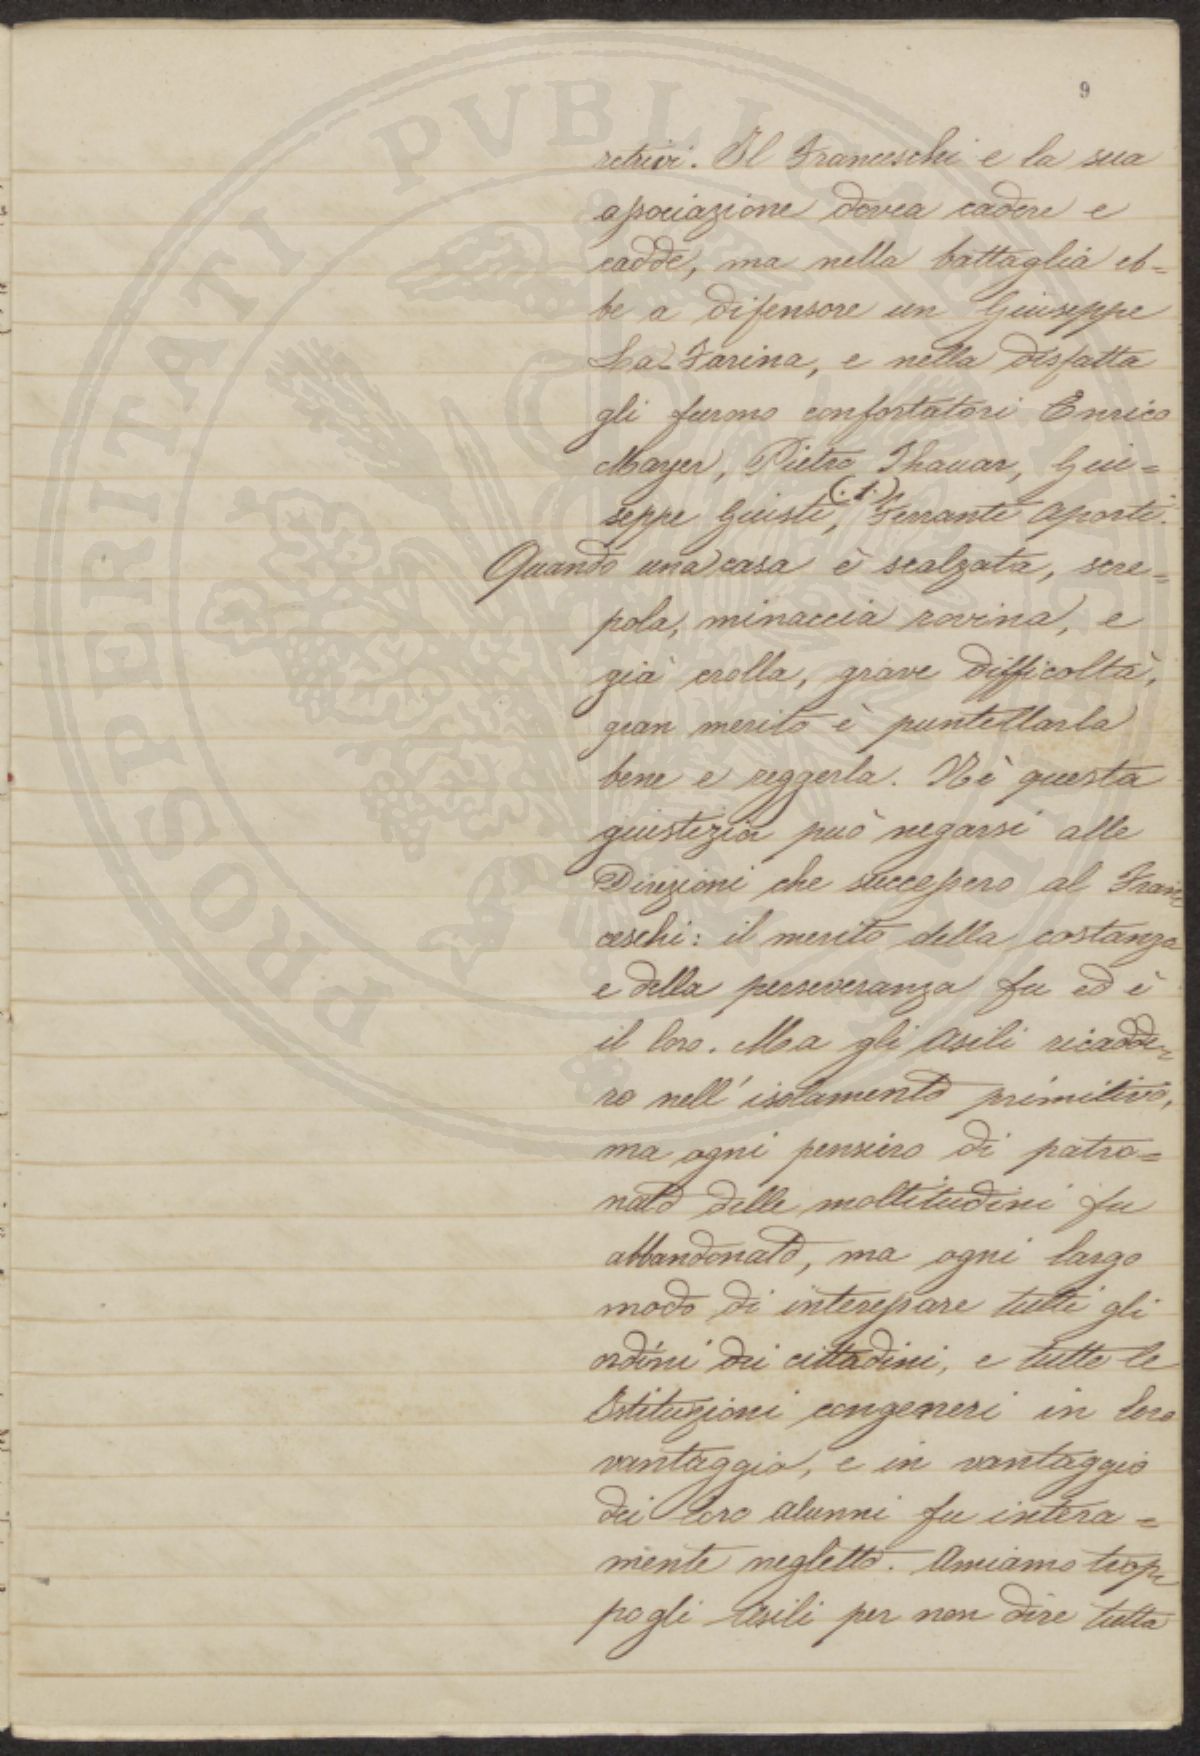 9
retrivi. Il Franceschi e la sua
associazione dovea cadere e
cadde, ma nella battaglia eb=
be a difensore un Giuseppe
La-Farina, e nella disfatta
gli furono confortatori Enrico
Mayer, Pietro Thauar, Giu=
seppe Giusti, (.1.) Ferrante Aporti.
Quando una casa è scalzata, scre=
pola, minaccia rovina, e
già crolla, grave difficoltà,
gran merito è puntellarla
bene e reggerla. Nè questa
giustizia può negarsi alle
Direzioni che successero al Fran=
ceschi: il merito della costanza
e della perseveranza fu ed è
il loro. Ma gli Asili ricadde=
ro nell'isolamento primitivo,
ma ogni pensiero di patro=
nato delle moltitudini fu
abbandonato, ma ogni largo
modo di interessare tutti gli
ordini dei cittadini, e tutte le
Istituzioni congeneri in loro
vantaggio, e in vantaggio
dei loro alunni fu intera=
mente negletto. Amiamo trop=
po gli Asili per non dire tutta
PROSPERITATI PVBLICAE